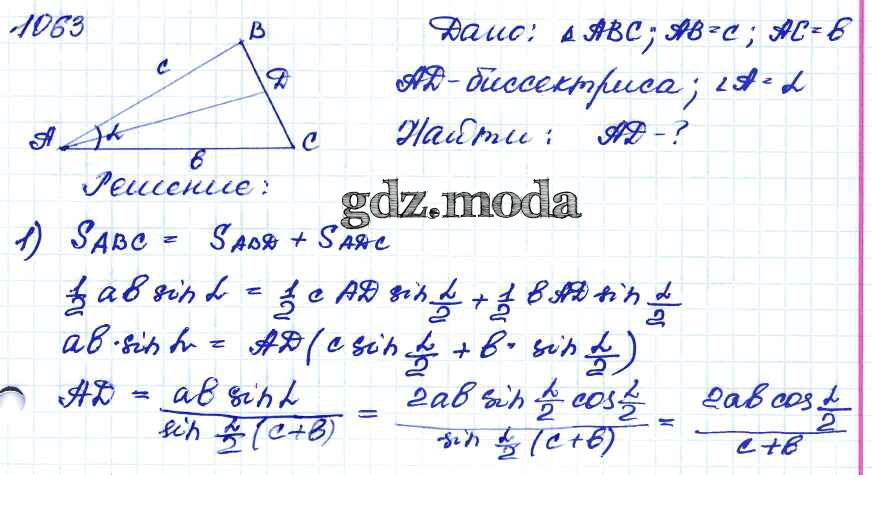 1063
B
c
D
A
α
b
C
Дано: △ABC; AB=c; AC=b
AD-биссектриса; ∠A=α
Найти: AD-?
Решение:
gdz.moda
1) S_ABC = S_ABD + S_ADC
1/2 ab sin α = 1/2 c AD sin α/2 + 1/2 b AD sin α/2
ab·sin α = AD(c sin α/2 + b· sin α/2)
AD = ab sin α / sin α/2 (c+b) = 2ab sin α/2 cos α/2 / sin α/2 (c+b) = 2ab cos α/2 / c+b